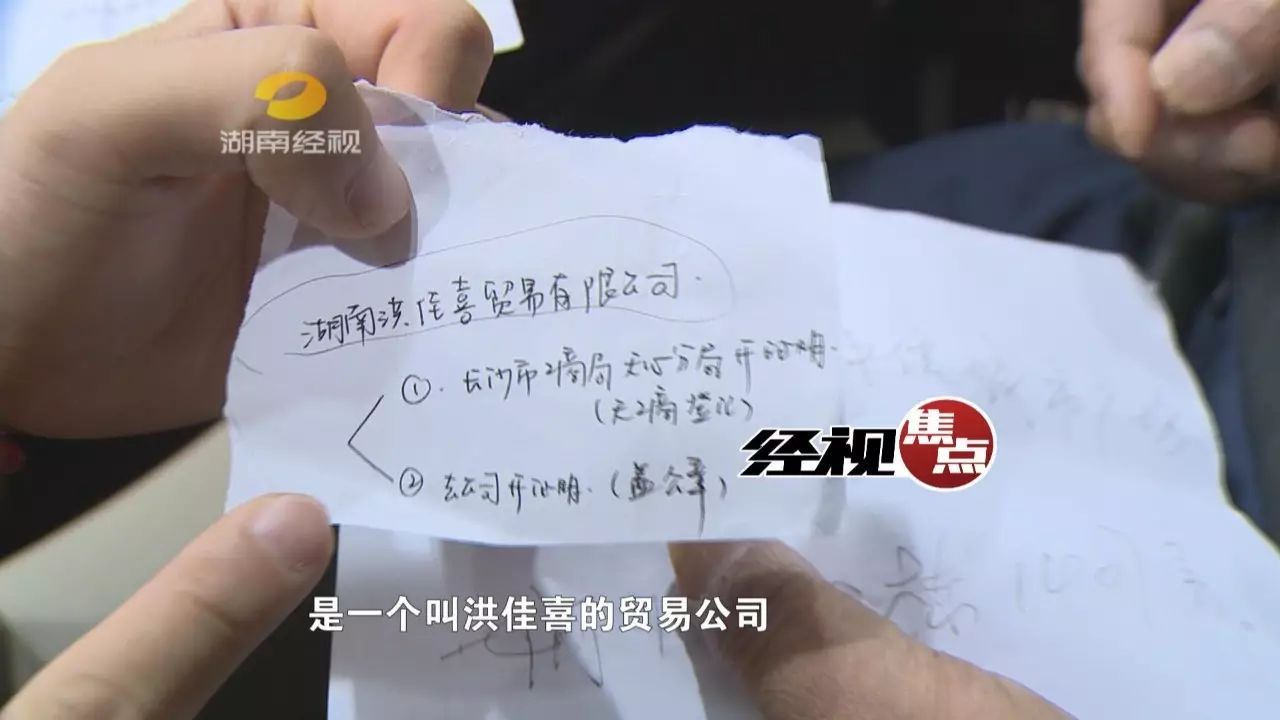 湖南经视
湖南洪佳喜贸易有限公司.
①. 长沙市工商局天心分局开证明.
(无工商登记)
② 去公司开证明.(盖公章)
经视焦点
是一个叫洪佳喜的贸易公司